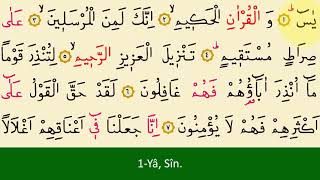 يٰسٓ ﴿١﴾ وَ الْقُرْاٰنِ الْحَكٖيمِ ﴿٢﴾ اِنَّكَ لَمِنَ الْمُرْسَلٖينَ ﴿٣﴾ عَلٰى
صِرَاطٍ مُسْتَقٖيمٍ ﴿٤﴾ تَنْزٖيلَ الْعَزٖيزِ الرَّحٖيمِ ﴿٥﴾ لِتُنْذِرَ قَوْمًا
مَٓا اُنْذِرَ اٰبَٓاؤُ۬هُمْ فَهُمْ غَافِلُونَ ﴿٦﴾ لَقَدْ حَقَّ الْقَوْلُ عَلٰٓى
اَكْثَرِهِمْ فَهُمْ لَا يُؤْمِنُونَ ﴿٧﴾ اِنَّا جَعَلْنَا فٖٓي اَعْنَاقِهِمْ اَغْلَالًا
1-Yâ, Sîn.